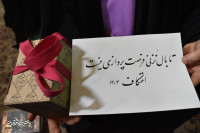 تا بال نزنی فرصت پروازی نیست
اعتکاف
۱۴۰۳